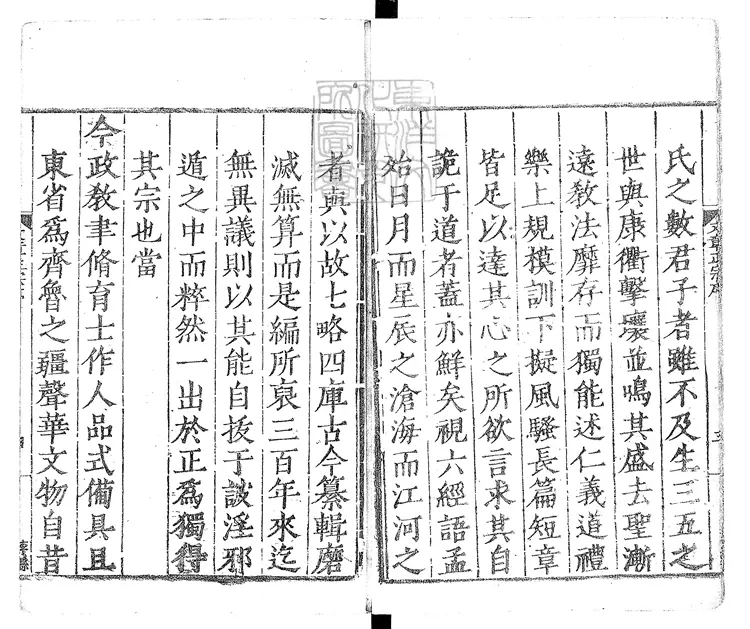 氏之數君子者雖不及生三五之
世與康衢擊壤並鳴其盛去聖漸
遠敎法靡存而獨能述仁義道禮
樂上規模訓下擬風騷長篇短章
皆足以達其心之所欲言求其自
詭于道者蓋亦鮮矣視六經語孟
殆日月而星辰之滄海而江河之
者與以故七略四庫古今纂輯磨
滅無算而是編所裒三百年來迄
無異議則以其能自拔于詖淫邪
遁之中而粹然一出於正爲獨得
其宗也當
今政敎聿脩育士作人品式備具且
東省爲齊魯之疆聲華文物自昔